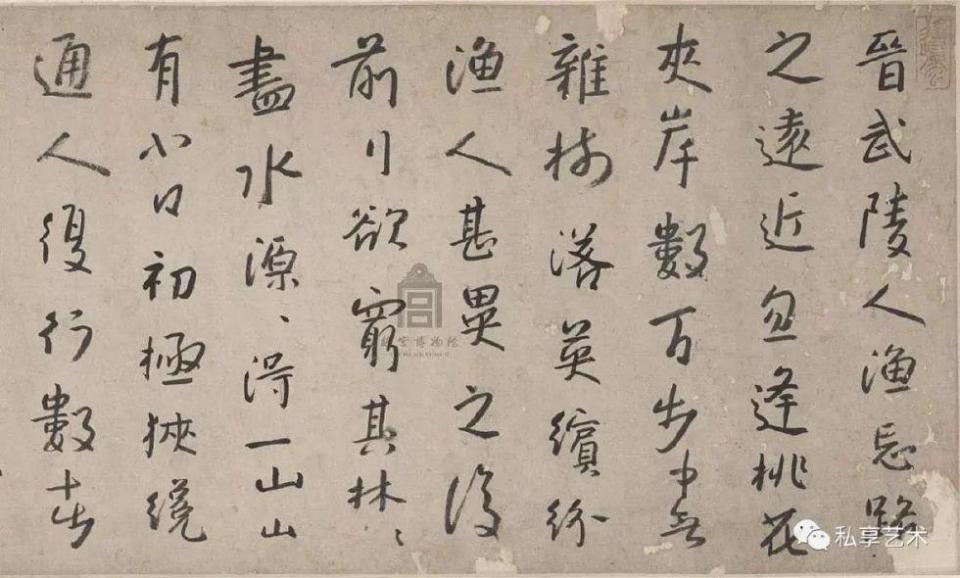 晉武陵人漁忘路
之遠近忽逢桃花
夾岸數百步中無
雜樹落英繽紛
漁人甚異之復
前行欲窮其林〻
盡水源〻得一山山
有小口初極狹纔
通人復行數十步
故宫博物院
私享艺术